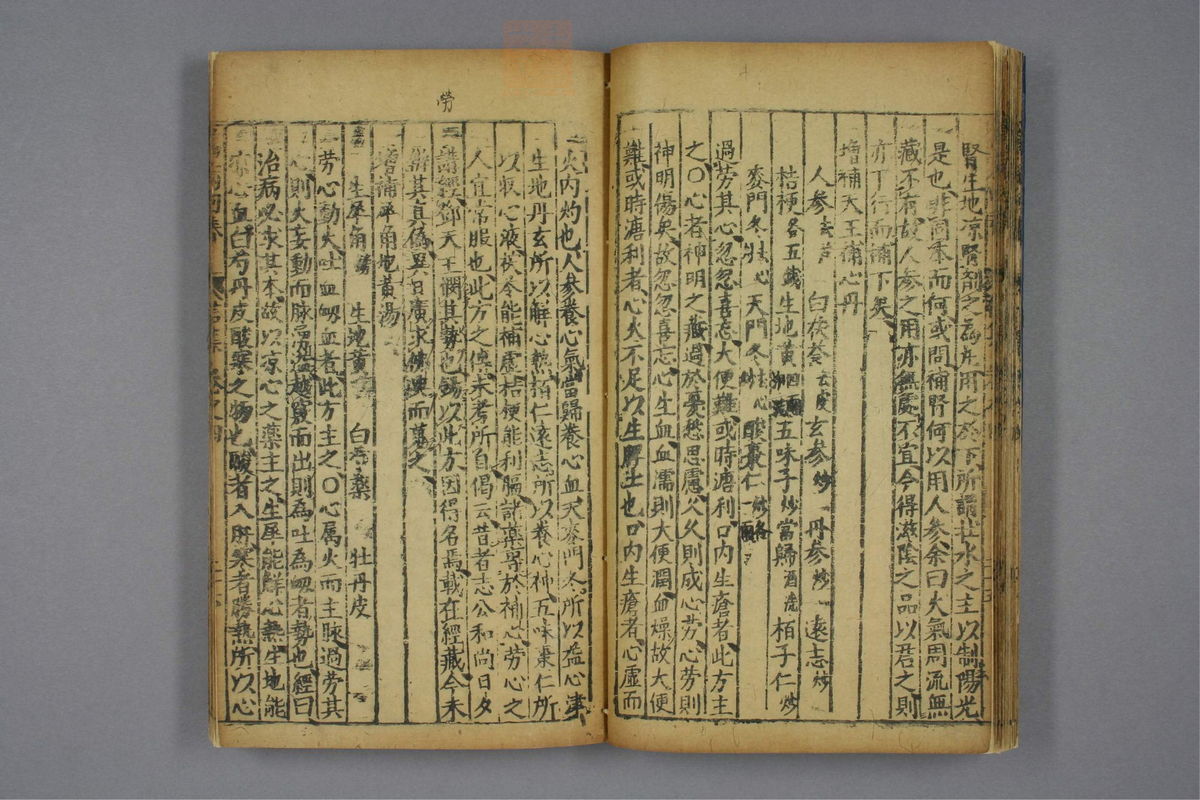 腎生地
是也非同本而何或問補腎何以用人參余曰大氣周流無
藏不有故人參之用亦無處不宜今得滋陰之品以君之則
亦下行而補下矣
增補天王補心丹
人參去芦 白茯苓去皮 玄參炒 丹參炒 遠志炒
桔梗各五錢 生地黃四兩 五味子炒 當歸酒洗 栢子仁炒
麥門冬去心 天門冬去心 酸棗仁炒各一兩
過勞其心忽忽喜忘大便難或時溏利口內生瘡者此方主
之〇心者神明之藏過於憂愁思慮久久則成心勞心勞則
神明傷矣故忽忽喜忘心生血血濡則大便潤血燥故大便
難或時溏利者心火不足以生脾土也口內生瘡者心虛而
火內灼也人參養心氣當歸養心血天麥門冬所以益心津
生地丹玄所以解心熱栢仁遠志所以養心神五味棗仁所
以收心液茯苓能補虛桔梗能利膈諸藥專於補心勞心之
人宜常服也此方之傳未考所自偈云昔者志公和尚日夕
講經鄧天王憫其勞也錫以此方因得名焉載在經藏今未
辨其真偽異日廣求佛典而
增補犀角地黃湯
生犀角 生地黃 白芍藥 牡丹皮
勞心動火吐血衂血者此方主之〇心属火而主脉過勞其
心則火妄動而脉溢越竅而出則為吐為衂者勢也經曰
治病必求其本故以凉心之藥主之生犀能解心熱生地能
凉心血白芍丹皮酸寒之物也酸者入肝寒者勝熱所以心
勞